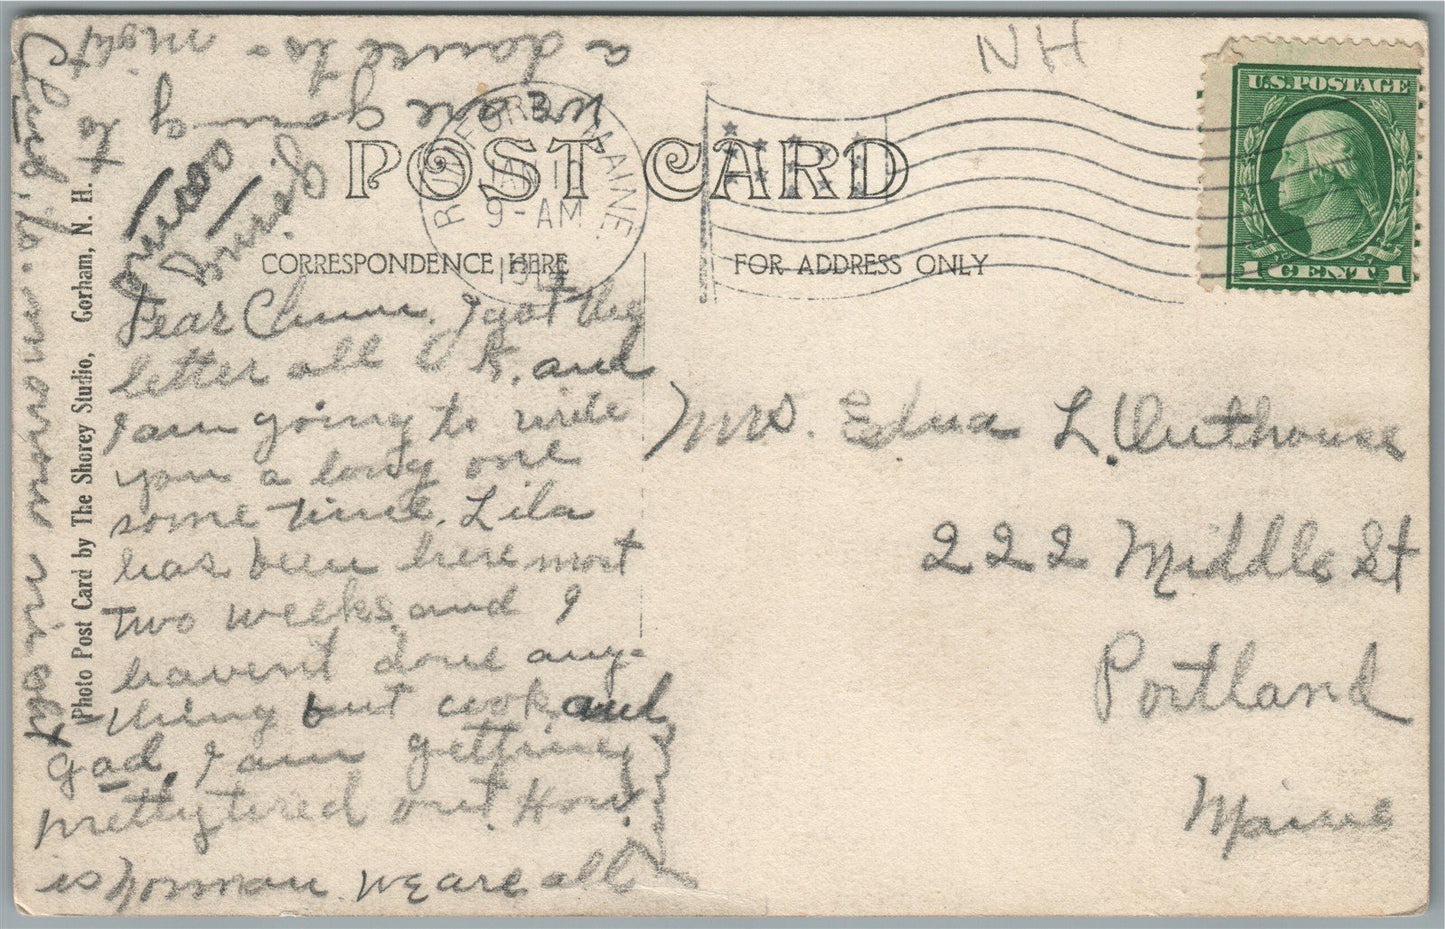 NH
U.S. POSTAGE
1 CENT 1
RUMFORD, MAINE.
9-AM
POST CARD
CORRESPONDENCE HERE
FOR ADDRESS ONLY
Photo Post Card by The Shorey Studio, Gorham, N. H.
Dear Chum, I got the
letter all O K, and
I am going to write
you a long one
some time. Lila
has been here most
two weeks, and I
havent done any-
-thing but cook, and
gad, I am getting
pretty tired out. How
is Norman. We are all
to morrow night
we are going to
a dance to-night
Mrs. Edna L. Outhouse
222 Middle St
Portland
Maine